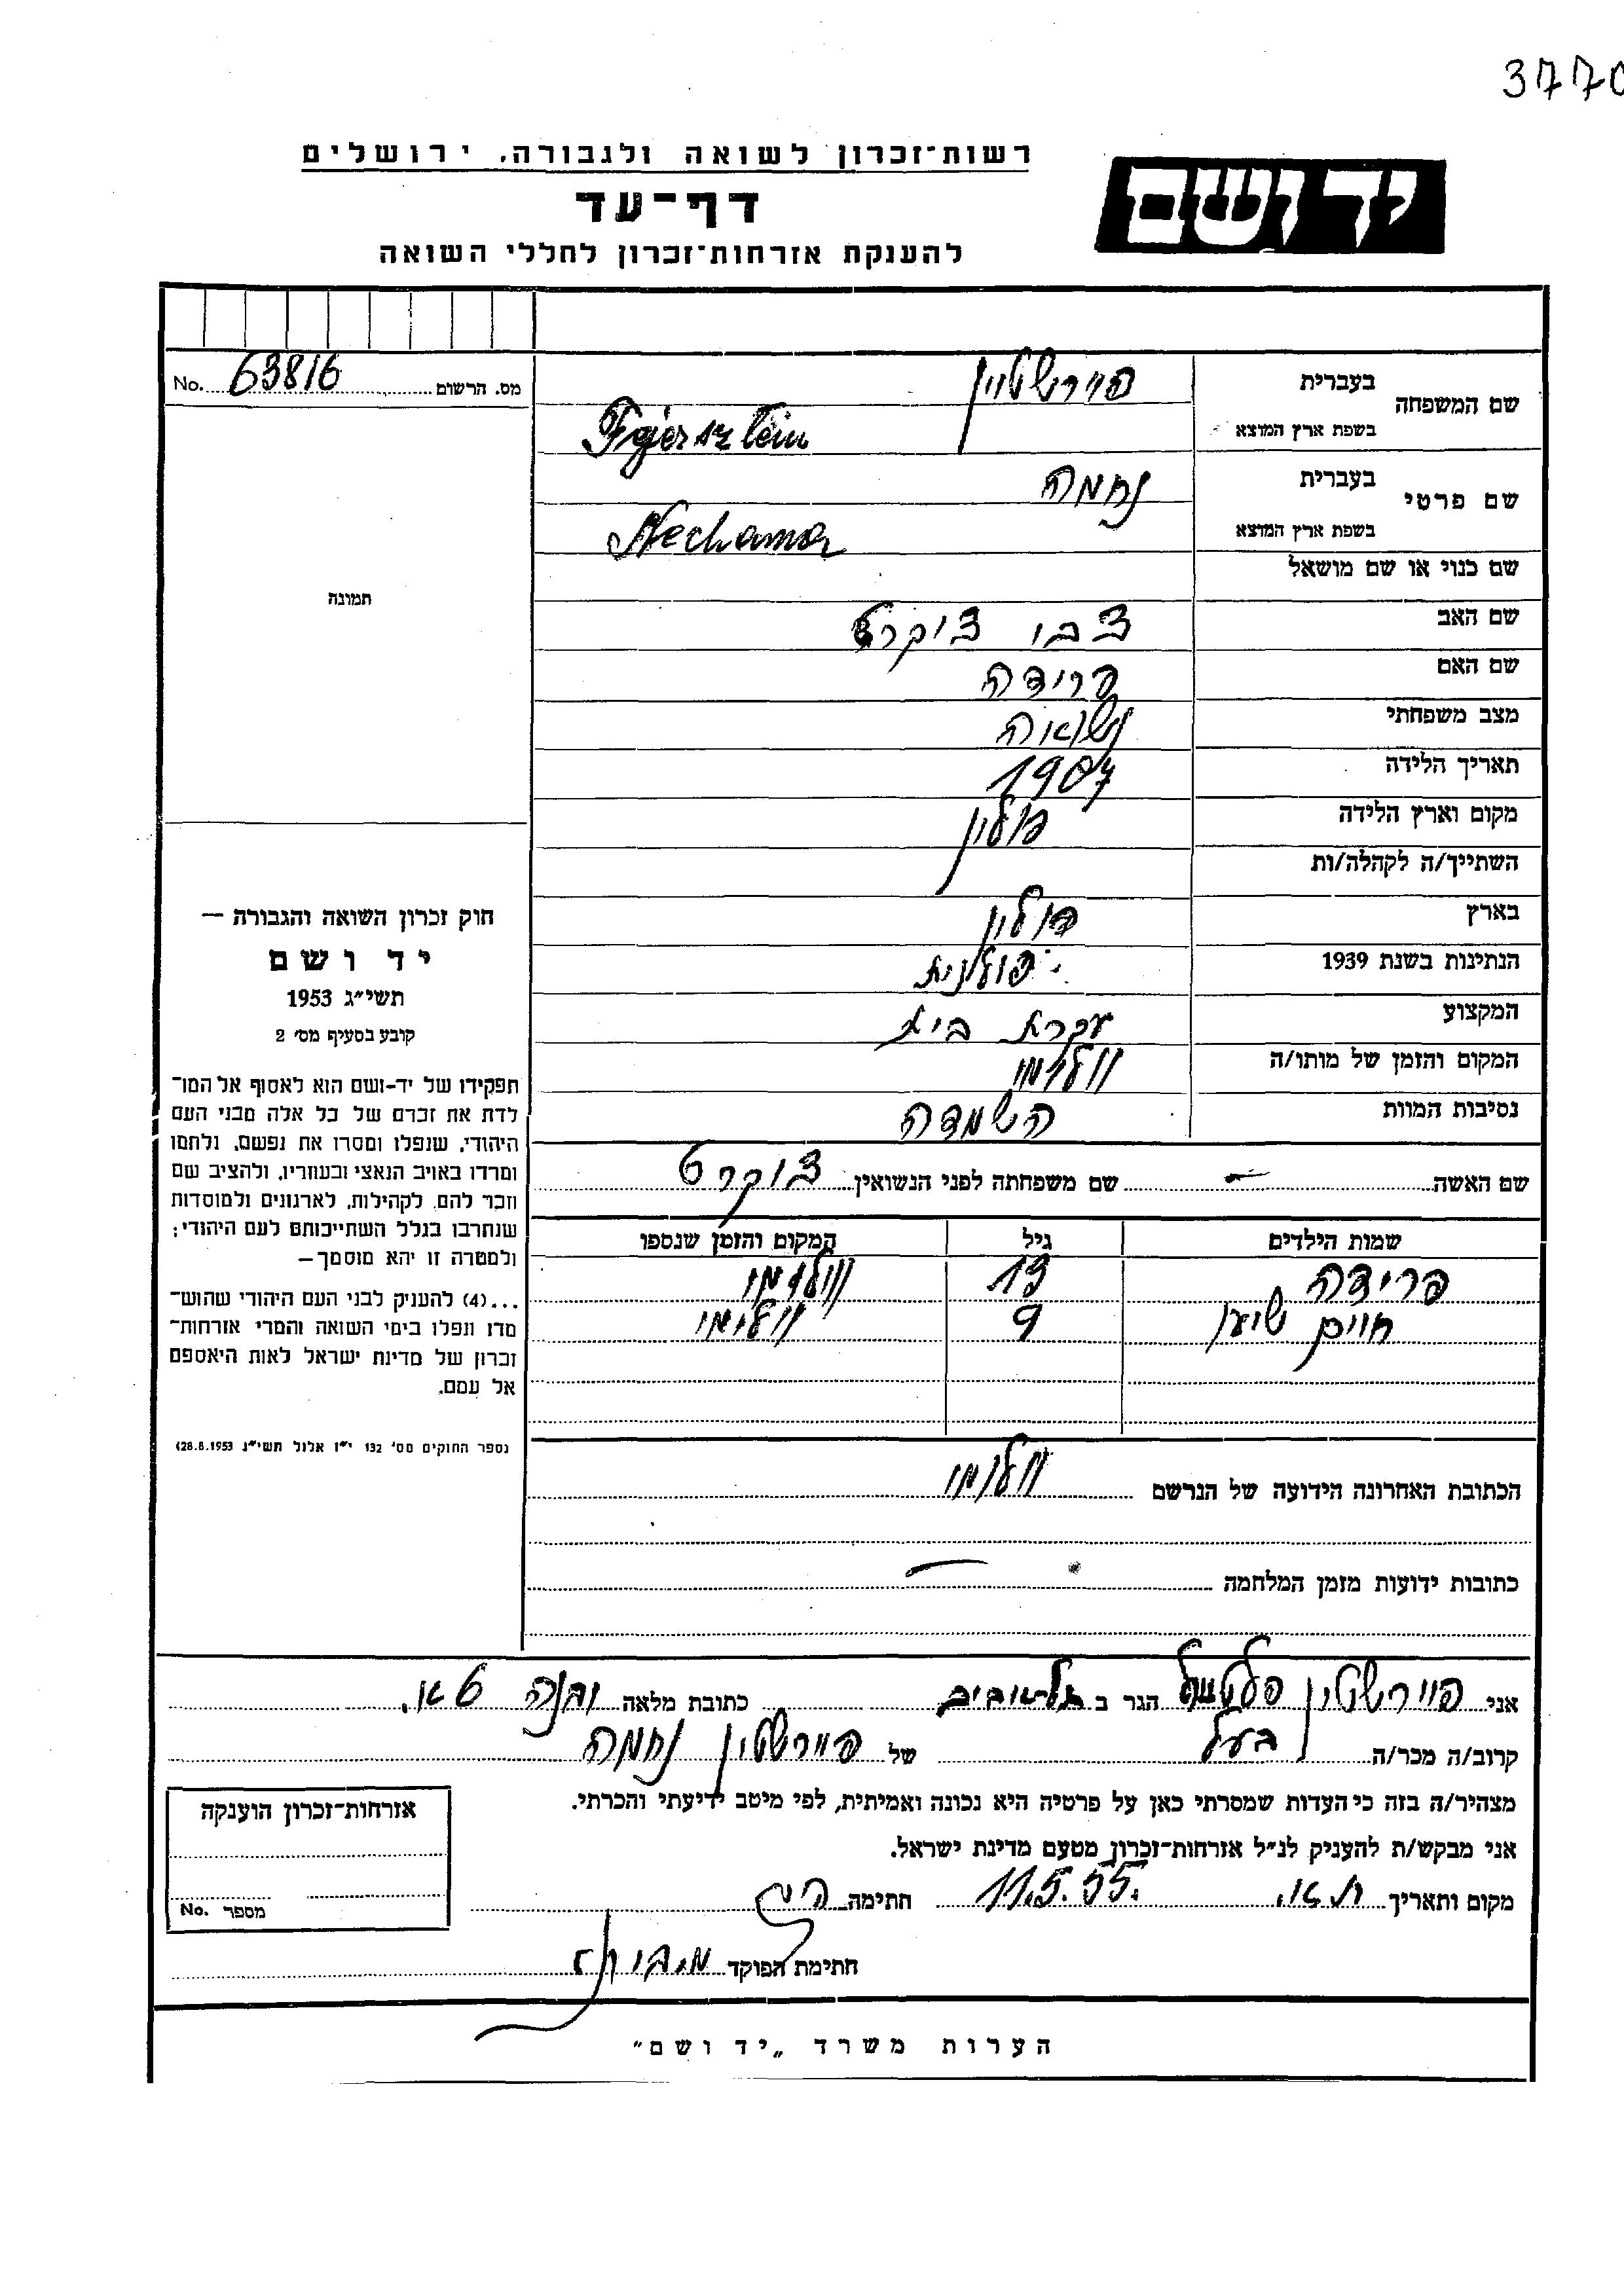 3770
רשות־זכרון לשואה ולגבורה, ירושלים
יד ושם
דף־עד
להענקת אזרחות־זכרון לחללי השואה
מס. הרשום 63816 No.
שם המשפחה
בעברית פיירשטיין
בשפת ארץ המוצא Fajersztein
שם פרטי
בעברית נחמה
בשפת ארץ המוצא Nechama
שם כנוי או שם מושאל
שם האב צבי צוקרט
שם האם פרידה
מצב משפחתי נשואה
תאריך הלידה 1907
מקום וארץ הלידה פולין
השתייך/ה לקהלה/ות
בארץ פולין
הנתינות בשנת 1939 פולנית
המקצוע עקרת בית
המקום והזמן של מותו/ה
נסיבות המוות השמדה
שם האשה — שם משפחתה לפני הנשואין צוקרט
שמות הילדים גיל המקום והזמן שנספו
פרידה 13
חיים 9
הכתובת האחרונה הידועה של הנרשם
כתובות ידועות מזמן המלחמה —
תמונה
חוק זכרון השואה והגבורה —
יד ושם
תשי״ג 1953
קובע בסעיף מס׳ 2
תפקידו של יד-ושם הוא לאסוף אל המו־
לדת את זכרם של כל אלה מבני העם
היהודי, שנפלו ומסרו את נפשם, נלחמו
ומרדו באויב הנאצי ובעוזריו, ולהציב שם
וזכר להם, לקהילות, לארגונים ולמוסדות
שנחרבו בגלל השתייכותם לעם היהודי;
ולמטרה זו יהא מוסמך—
...(4) להעניק לבני העם היהודי שהוש־
מדו ונפלו בימי השואה והמרי אזרחות־
זכרון של מדינת ישראל לאות היאספם
אל עמם.
(ספר החוקים מס׳ 132 י״ז אלול תשי״ג 28.8.1953)
אני פיירשטין הגר ב תל־אביב כתובת מלאה
קרוב/ה מכר/ה בעל של פיירשטין נחמה
מצהיר/ה בזה כי העדות שמסרתי כאן על פרטיה היא נכונה ואמיתית, לפי מיטב ידיעתי והכרתי.
אני מבקש/ת להעניק לנ״ל אזרחות־זכרון מטעם מדינת ישראל.
מקום ותאריך ת.א. 11.5.55. חתימה
חתימת הפוקד
אזרחות־זכרון הוענקה
מספר No.
הערות משרד „יד ושם״